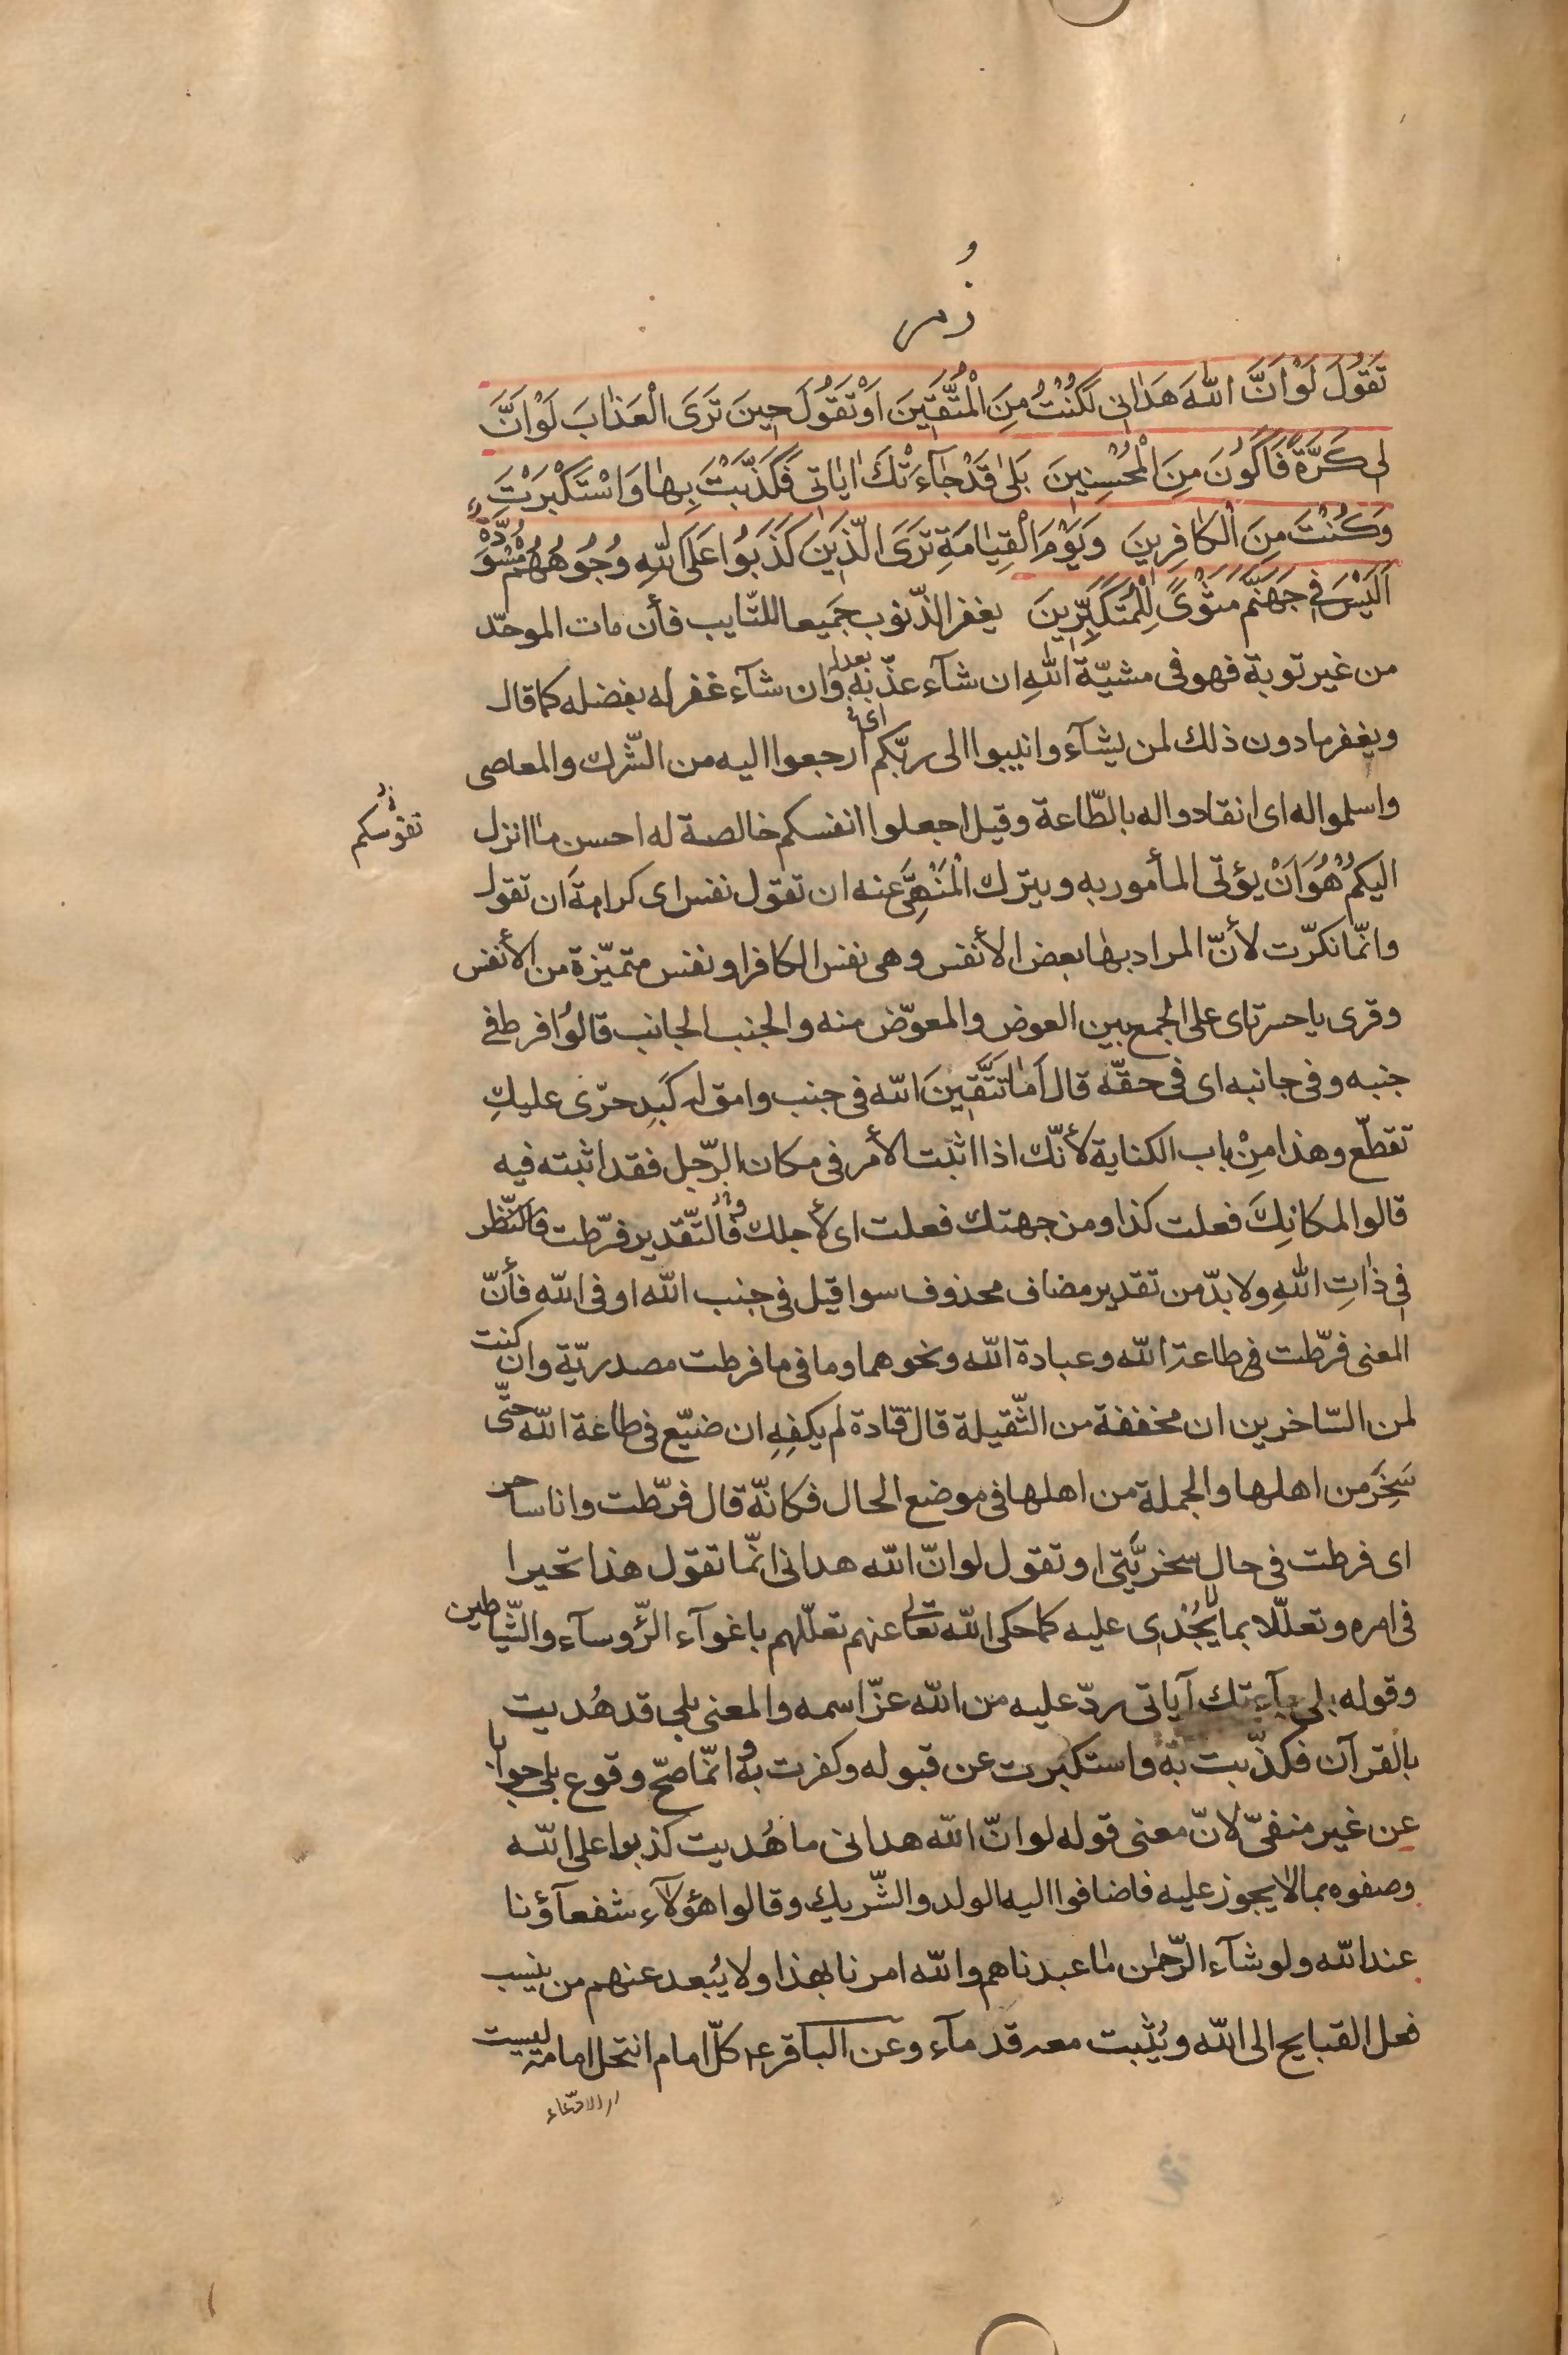 زُمر
تَقُولَ لَوْ اَنَّ اللّٰهَ هَدٰانى لَكُنْتُ مِنَ الْمُتَّقينَ اَوْ تَقُولَ حينَ تَرَى الْعَذٰابَ لَوْ اَنَّ
لى كَرَّةً فَاَكُونَ مِنَ الْمُحْسِنينَ بَلىٰ قَدْ جٰآءَتْكَ اٰيٰاتى فَكَذَّبْتَ بِهٰا وَاسْتَكْبَرْتَ
وَكُنْتَ مِنَ الْكٰافِرينَ وَيَوْمَ الْقِيٰامَةِ تَرَى الَّذينَ كَذَبُوا عَلَى اللّٰهِ وُجُوهُهُمْ مُسْوَدَّةٌ
اَلَيْسَ فى جَهَنَّمَ مَثْوًى لِلْمُتَكَبِّرينَ يغفر الذّنوب جَميعا للتّايب فأن مات الموحّد
من غير توبة فهو فى مشيّة اللّٰهِ ان شآء عذّبه بعدله وان شآء غفر له بفضله كما قال
ويغفر ما دون ذلك لمن يشآء وانيبوا الى ربّكم اى ارجعوا اليه من الشّرك والمعاصى
واسلموا له اى انقادوا له بالطّاعة وقيل اجعلوا انفسكم خالصة له احسن مٰا انزل
نفوسكم
اليكم هُوَ اَنْ يؤتى المأمور به ويترك الْمَنْهِىَّ عنه ان تقول نفس اى كرامةَ ان تقول
وانّما نكرّت لأنّ المراد بهٰا بعض الأنفس وهى نفس الكافر او نفس متميّزة من الأنفس
وقرى يا حسرتاى على الجمع بين العوض والمعوّض منه والجنب الجانب قالُوا فرط فى
جنبه وفى جانبه اى فى حقّه قال اَمٰا تَتَّقينَ اللّه فى جنب وامق له كَبِد حرّى عليكِ
تقطّع وهذا مِنْ باب الكناية لأنّك اذا اثبت الأمر فى مكان الرّجل فقد اثبته فيه
قالوا لمكانِكَ فعلت كذا ومن جهتك فعلت اى لأجلك فالتّقدير فرّطت فالنّظر
فى ذٰاتِ اللّٰهِ ولا بدّ من تقدير مضاف محذوف سوا قيل فى جنب اللّه او فى اللّه فأنّ
المعنى فرّطت فى طاعة اللّه وعبادة اللّه ونحوهما وما فى ما فرطت مصدريّة وان كنت
لمن السّاخرين ان مخففة من الثّقيلة قال قتادة لم يكفِهِ ان ضيّع فى طاعة اللّه حتّى
سَخِرَ من اهلها والجملة من اهلها فى موضع الحال فكانّه قال فرّطت وانا ساخر
اى فرطت فى حال سخريّتى او تقول لو انّ اللّه هدانى انّما تقول هذا تحيرا
فى امره وتعلّلا بما لا يُجْدى عليه كما حكى اللّه تعالى عنهم تعلّلهم باغوآء الرّؤسآء والشّياطين
وقوله بلى جآءتك آياتى ردّ عليه من اللّه عزّ اسمه والمعنى بلى قد هُديت
بالقرآن فكذّبت به واستكبرت عن قبوله وكفرت به وانّما صحّ وقوع بلى جوابا
عن غير منفىّ لانّ معنى قوله لو انّ اللّه هدانى ما هُديت كذبوا على اللّه
وصفوه بما لا يجوز عليه فاضافوا اليه الولد والشّريك وقالوا هؤلآء شفعآؤنا
عند اللّه ولو شآء الرّحمٰن مٰا عبدناهم واللّه امرنا بهذا ولا يُبعد عنهم من ينسب
فعل القبايح الى اللّه ويُثبت معه قدمآء وعن الباقر ع كلّ امام انتحل امامة ليست